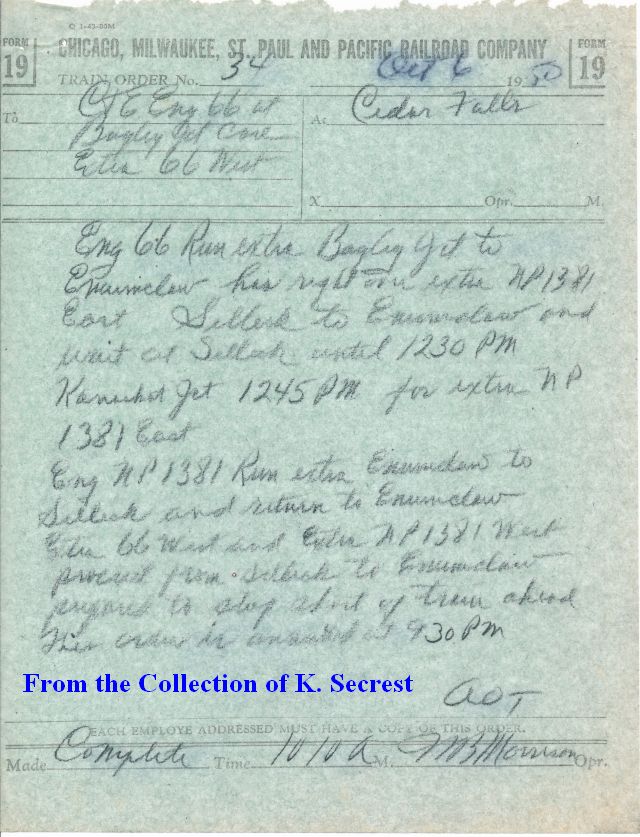 © 1-49-80M
FORM 19
CHICAGO, MILWAUKEE, ST. PAUL AND PACIFIC RAILROAD COMPANY
FORM 19
TRAIN ORDER No. 34 Oct 6 1950
To C&E Eng 66 at
Bagley Jct Care
Extra 66 West
At Cedar Falls
X Opr. M.
Eng 66 Run extra Bagley Jct to
Enumclaw has right over extra NP1381
East Selleck to Enumclaw and
wait at Selleck until 1230 PM
Kanaskat Jct 1245 PM for extra NP
1381 East
Eng NP1381 Run extra Enumclaw to
Selleck and return to Enumclaw
Extra 66 West and Extra NP1381 West
proceed from Selleck to Enumclaw
prepared to stop short of train ahead
This order is annulled at 930 PM
From the Collection of K. Secrest
EACH EMPLOYE ADDRESSED MUST HAVE A COPY OF THIS ORDER.
Made Complete Time 1010 A M. Morrison Opr.